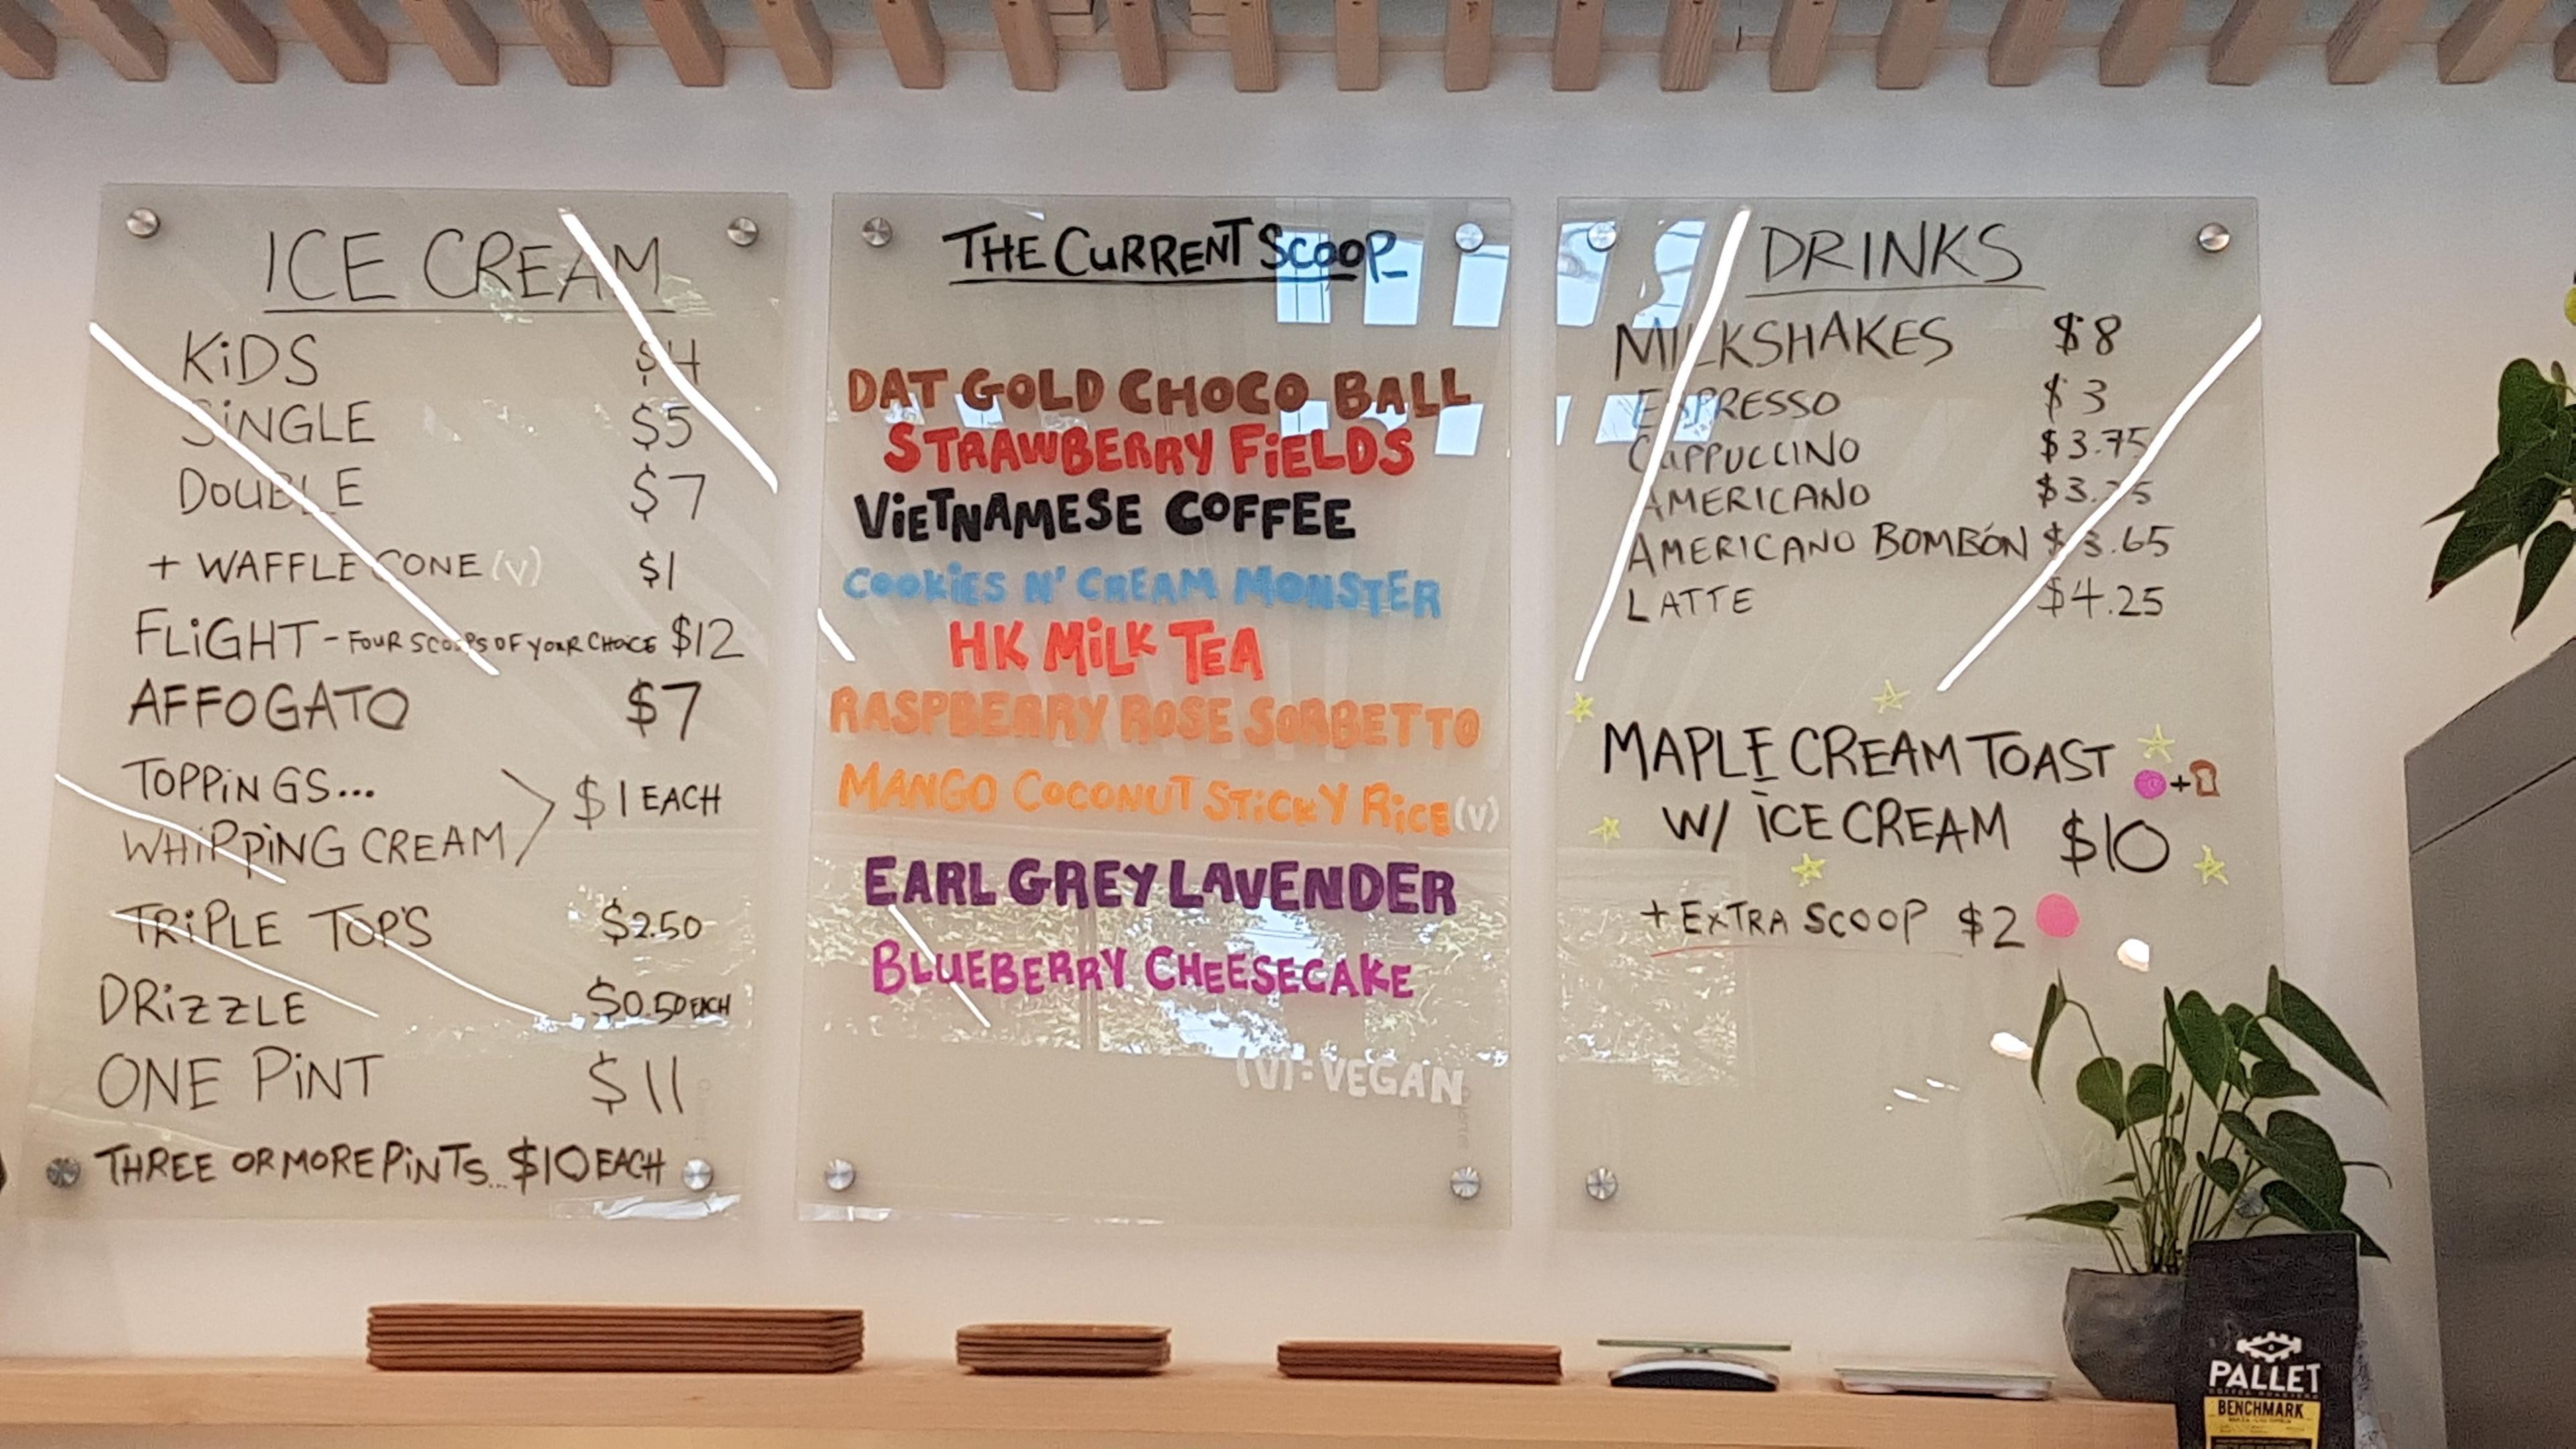 ICE CREAM
KiDS $4
SiNGLE $5
DOUBLE $7
+ WAFFLE CONE (V) $1
FLiGHT - FOUR SCOOPS OF YOUR CHOICE $12
AFFOGATO $7
TOPPiNGS...
WHiPPiNG CREAM $1 EACH
TRiPLE TOP'S $2.50
DRiZZLE $0.50 EACH
ONE PiNT $11
THREE OR MORE PiNTS... $10 EACH
THE CURRENT SCOOP
DAT GOLD CHOCO BALL
STRAWBERRY FiELDS
ViETNAMESE COFFEE
COOKiES N' CREAM MONSTER
HK MiLK TEA
RASPBERRY ROSE SORBETTO
MANGO COCONUT STiCKY RiCE (V)
EARL GREY LAVENDER
BLUEBERRY CHEESECAKE
(V): VEGAN
DRINKS
MILKSHAKES $8
ESPRESSO $3
CAPPUCCINO $3.75
AMERICANO
AMERICANO BOMBÓN $3.65
LATTE $4.25
MAPLE CREAM TOAST
W/ iCE CREAM $10
+ EXTRA SCOOP $2
PALLET
COFFEE ROASTERS
BENCHMARK